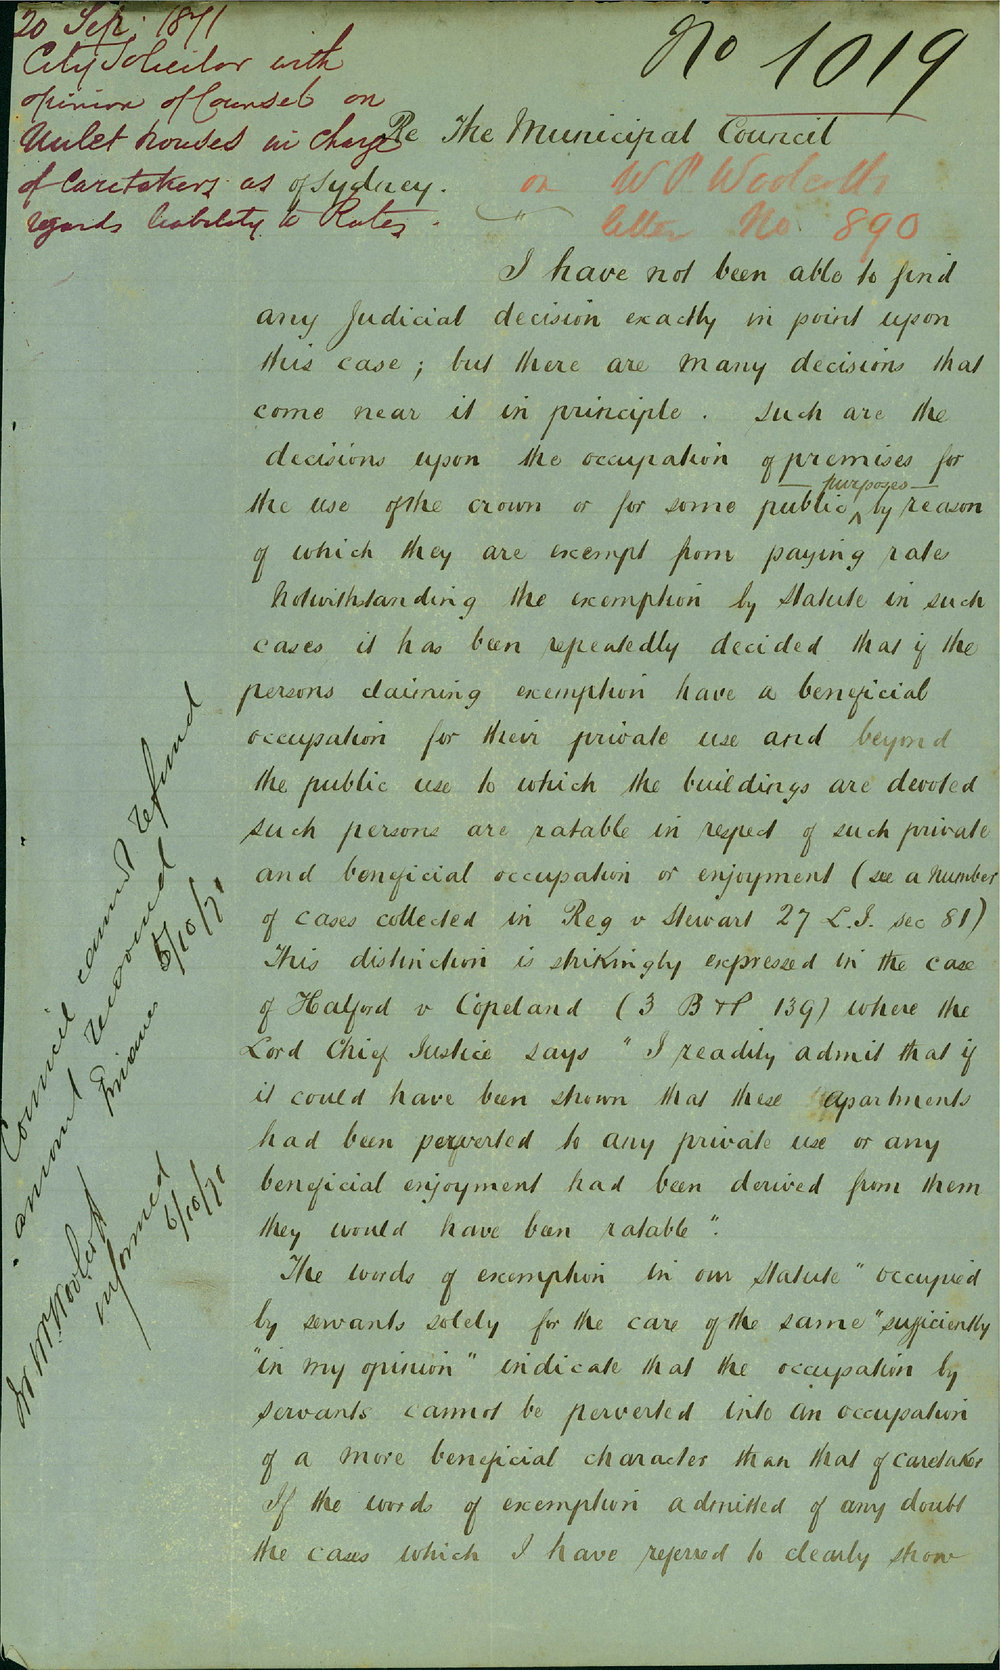 20 Sep: 1871
City Solicitor with
opinion of Counsel on
Unlet houses in charge
of Caretakers as
regards liability to Rates.
No 1019
Re The Municipal Council
of Sydney.
on W P Woolcotts
letter No 890
I have not been able to find
any Judicial decision exactly in point upon
this case; but there are many decisions that
come near it in principle. Such are the
decisions upon the occupation of premises for
the use of the crown or for some public purposes by reason
of which they are exempt from paying rates
Notwithstanding the exemption by Statute in such
cases it has been repeatedly decided that if the
persons claiming exemption have a beneficial
occupation for their private use and beyond
the public use to which the buildings are devoted
such persons are ratable in respect of such private
and beneficial occupation or enjoyment (see a number
of cases collected in Reg v Stewart 27 L.J. sec 81)
This distinction is strikingly expressed in the case
of Halford v Copeland (3 B & P 139) where the
Lord Chief Justice says "I readily admit that if
it could have been shown that these apartments
had been perverted to any private use or any
beneficial enjoyment had been derived from them
they would have been ratable".
The words of exemption in our Statute "occupied
by servants solely for the care of the same "sufficiently
"in my opinion" indicate that the occupation by
servants cannot be perverted into an occupation
of a more beneficial character than that of caretaker
If the words of exemption admitted of any doubt
the cases which I have referred to clearly show
Council cannot refund
amount recovered
Finance 5/10/71
Mr Woolcott
informed
6/10/71